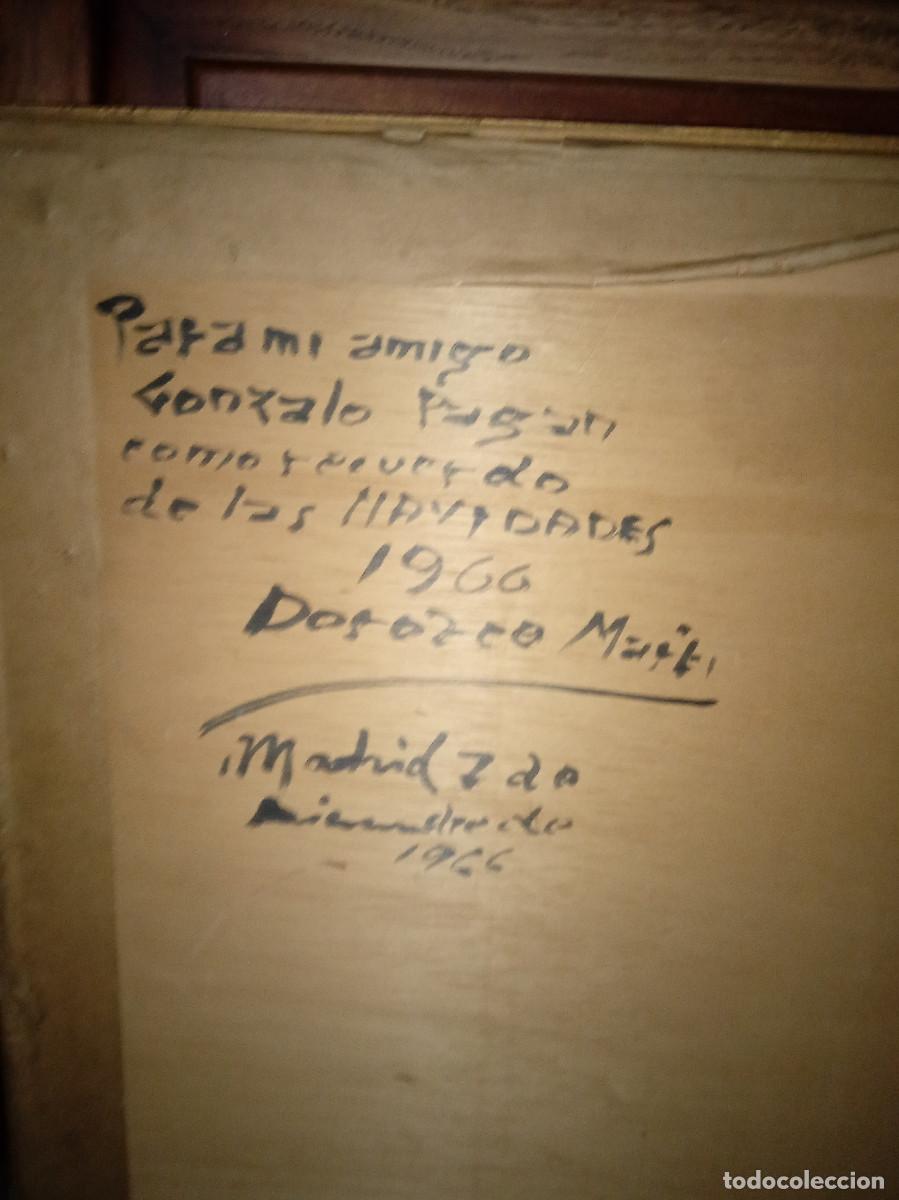 Para mi amigo
Gonzalo Pagan
como recuerdo
de las NAVIDADES
1966
Dorozco
Madrid 7 de
Diciembre de
1966
todocoleccion